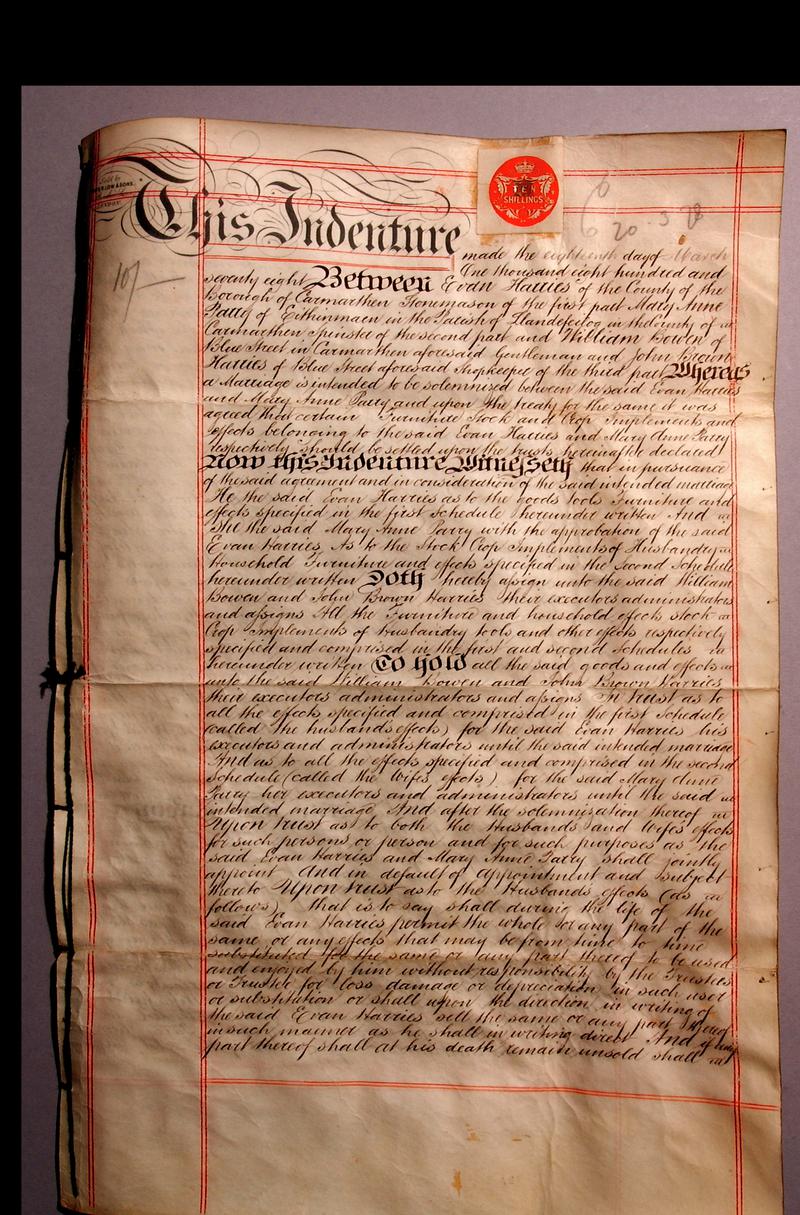 Sold by
& SONS.
LONDON.
TEN
SHILLINGS
20. 3. 78
10/-
This Indenture
made the eighteenth day of March
One thousand eight hundred and
seventy eight Between Evan Harries of the County of the
Borough of Carmarthen Stonemason of the first part Mary Anne
Parry of in the Parish of Llandefeilog in the County of
Carmarthen Spinster of the second part and William Bowen of
Blue Street in Carmarthen aforesaid Gentleman and John Brown
Harries of Blue Street aforesaid Shopkeeper of the third part Whereas
a Marriage is intended to be solemnised between the said Evan Harries
and Mary Anne Parry and upon the treaty for the same it was
agreed that certain Furniture Stock and Crop Implements and
effects belonging to the said Evan Harries and Mary Anne Parry
respectively should be settled upon the trusts hereinafter declared
Now this Indenture Witnesseth that in pursuance
of the said agreement and in consideration of the said intended marriage
He the said Evan Harries as to the goods tools Furniture and
effects specified in the first Schedule hereunder written And
She the said Mary Anne Parry with the approbation of the said
Evan Harries As to the Stock Crop Implements of Husbandry
Household Furniture and effects specified in the Second Schedule
hereunder written Doth hereby assign unto the said William
Bowen and John Brown Harries their executors administrators
and assigns All the Furniture and household effects stock
Crop Implements of Husbandry tools and other effects respectively
specified and comprised in the first and second Schedules
hereunder written To Hold all the said goods and effects
unto the said William Bowen and John Brown Harries
their executors administrators and assigns In trust as to
all the effects specified and comprised in the first Schedule
(called the husbands effects) for the said Evan Harries his
executors and administrators until the said intended marriage
And as to all the effects specified and comprised in the second
Schedule (called the Wifes effects) for the said Mary Anne
Parry her executors and administrators until the said
intended marriage And after the solemnisation thereof
Upon trust as to both the Husbands and Wifes effects
for such persons or person and for such purposes as the
said Evan Harries and Mary Anne Parry shall jointly
appoint And in default of appointment and subject
thereto Upon trust as to the Husbands effects (as
follows) that is to say shall during the life of the
said Evan Harries permit the whole or any part of the
same or any effects that may be from time to time
substituted for the same or any part thereof to be used
and enjoyed by him without responsibility by the Trustees
or Trustee for loss damage or depreciation in such user
or substitution or shall upon the direction in writing of
the said Evan Harries sell the same or any part thereof
in such manner as he shall in writing direct And if any
part thereof shall at his death remain unsold shall